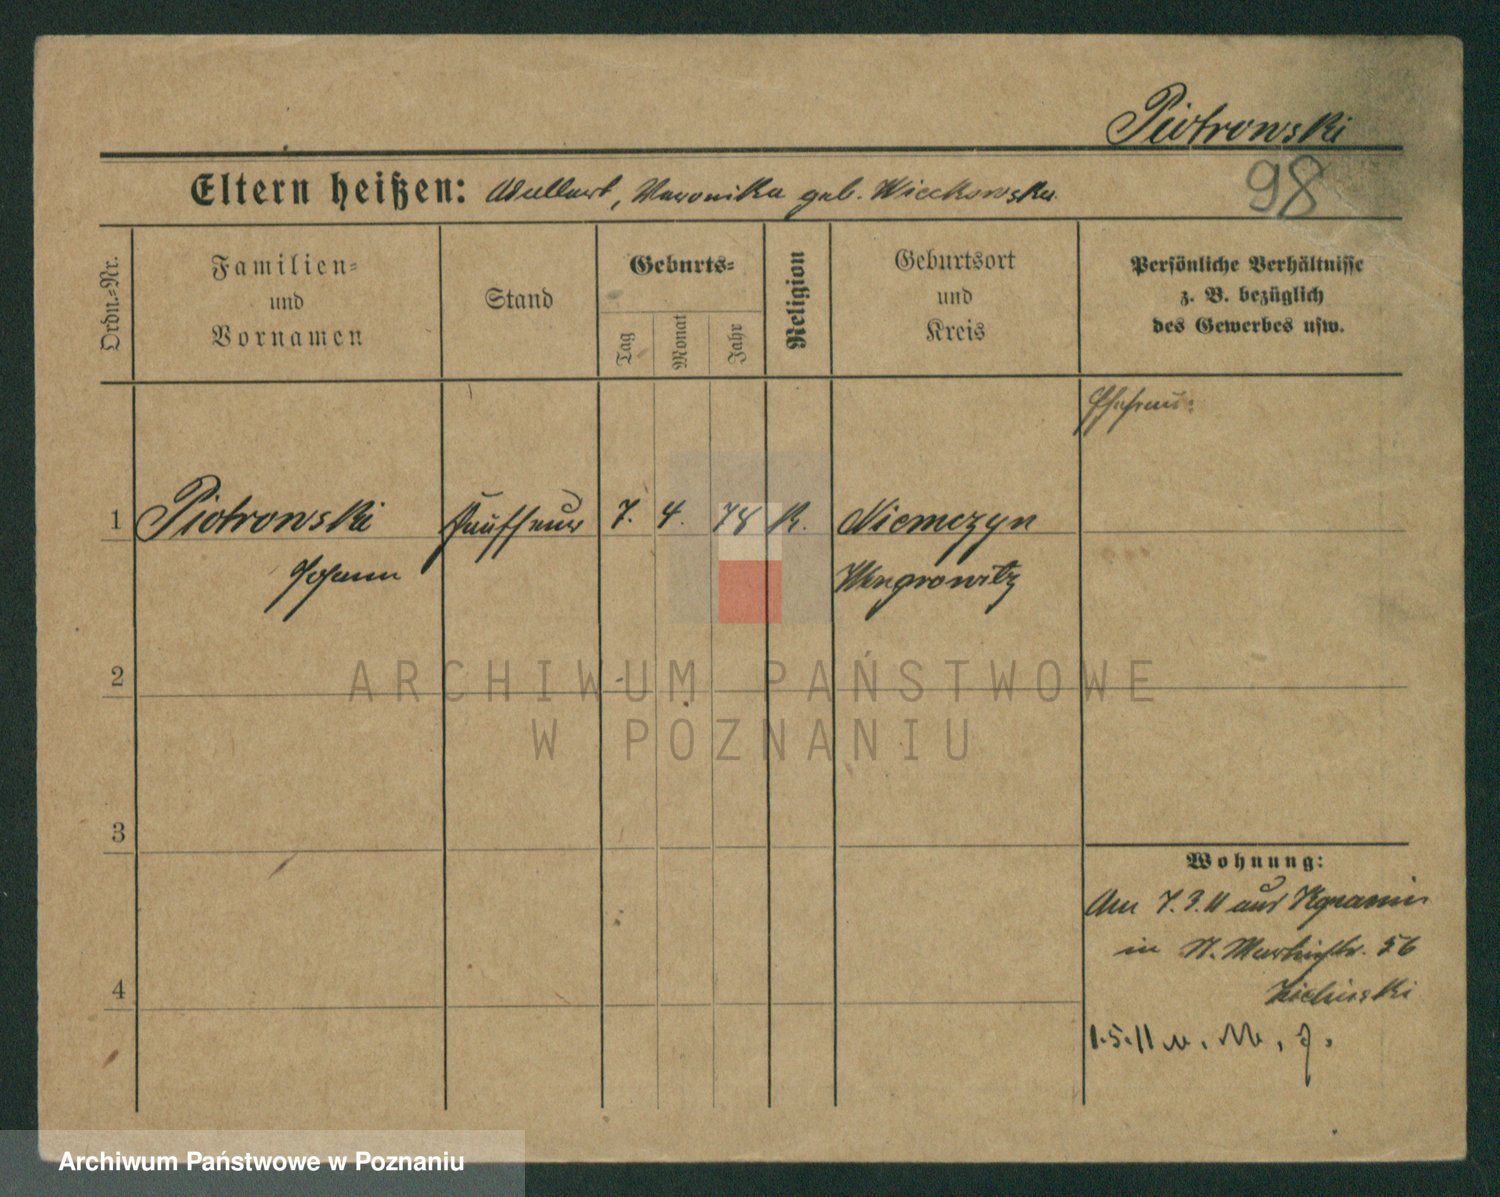 Piotrowski
98
Eltern heißen: Adalbert, Veronika geb. Wieckowska
Ordn.-Nr.
Familien-
und
Vornamen
Stand
Geburts-
Tag
Monat
Jahr
Religion
Geburtsort
und
Kreis
Persönliche Verhältnisse
z. B. bezüglich
des Gewerbes usw.
Ehefrau:
1 Piotrowski 7. 4. 78 K. Niemczyn
Johann Wongrowitz
2
3
4
Wohnung:
Am 7.3.11 aus
in St. Martinstr. 56
Zielinski
1.5.11 n. M. J.
ARCHIWUM PAŃSTWOWE
W POZNANIU
Archiwum Państwowe w Poznaniu